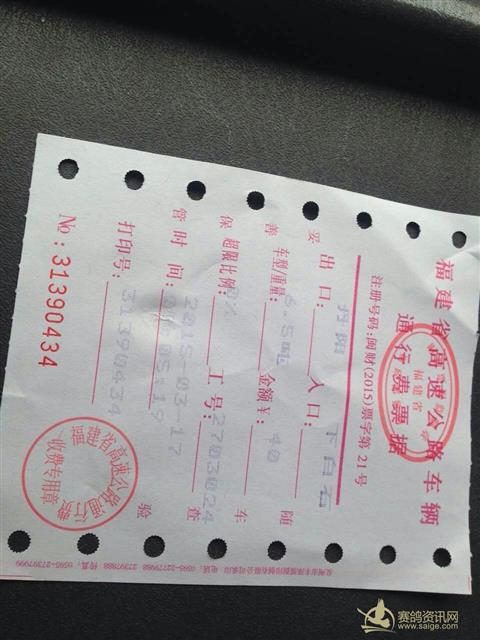 福建省高速公路车辆
通行费票据
福建省
注册号码:闽财(2015)票字第21号
出口: 丹阳 入口: 下白石
车型/重量: 6.5吨 金额¥: 40
超限比例: 0% 工号: 27030024
时间: 2015-03-17
05:19
打印号: 31390434
№:31390434
妥善保管 随车查验
福建省高速公路通行费
收费专用章
赛鸽资讯网
www.saige.com